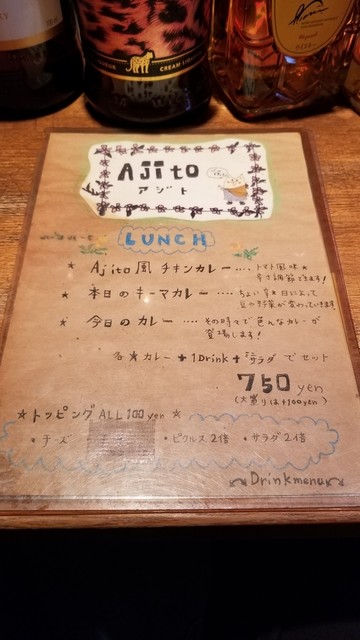 CREAM LIQUEUR
AJito
アジト
LUNCH
★ Ajito風 チキンカレー .... トマト風味★
辛さ調節できます!
★ 本日のキーマカレー .... ちょい辛★日によって
豆や野菜が変わっていきます。
★ 今日のカレー .... その時々で色んなカレーが
登場します!
各★カレー + 1Drink + サラダ でセット
750 yen
(大盛りは+100yen)
★トッピング ALL 100 yen ★
・チーズ ・ピクルス2倍 ・サラダ2倍
Drinkmenu